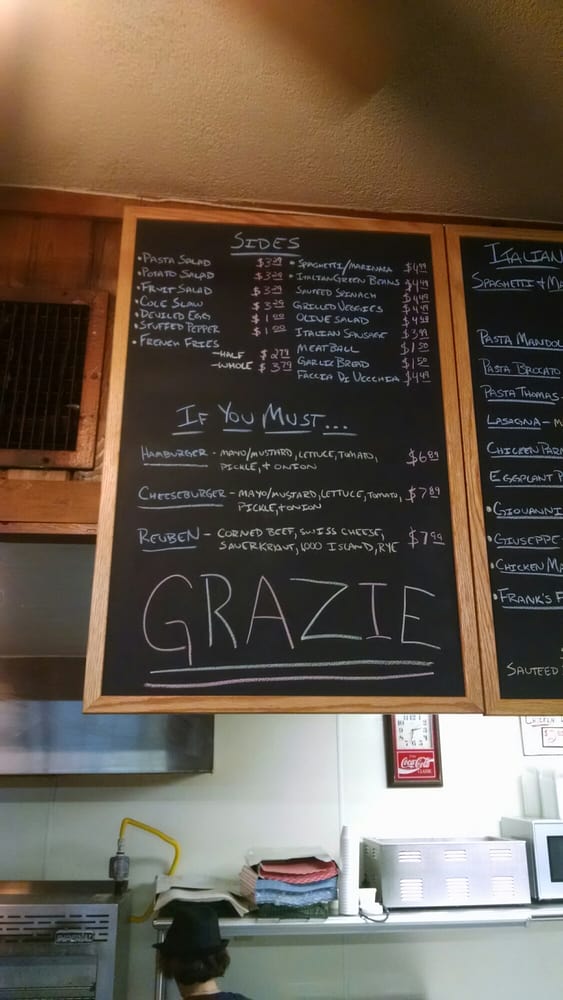 SIDES
• PASTA SALAD $3.29
• POTATO SALAD $3.29
• FRUIT SALAD $3.29
• COLE SLAW $3.29
• DEVILED EGG $1.00
• STUFFED PEPPER $1.00
• FRENCH FRIES
—HALF $2.79
—WHOLE $3.79
• SPAGHETTI/MARINARA $4.49
• ITALIAN GREEN BEANS $4.49
SAUTEED SPINACH $4.49
GRILLED VEGGIES $4.49
OLIVE SALAD $4.49
ITALIAN SAUSAGE $3.99
MEATBALL $1.50
GARLIC BREAD $1.50
FACCIA DI VECCHIA $4.49
IF YOU MUST...
HAMBURGER - MAYO/MUSTARD, LETTUCE, TOMATO, $6.89
PICKLE, + ONION
CHEESEBURGER - MAYO/MUSTARD, LETTUCE, TOMATO, $7.89
PICKLE, + ONION
REUBEN - CORNED BEEF, SWISS CHEESE, $7.99
SAUERKRAUT, 1000 ISLAND, RYE
GRAZIE
ITALIAN
SPAGHETTI + MA
PASTA MANDOL
PASTA BROCATO
PASTA THOMAS -
LASAGNA - M
CHICKEN PARM
EGGPLANT P
• GIOVANNI
• GIUSEPPE -
• CHICKEN MA
• FRANK'S F
SAUTEED
Coca-Cola
CLASSIC